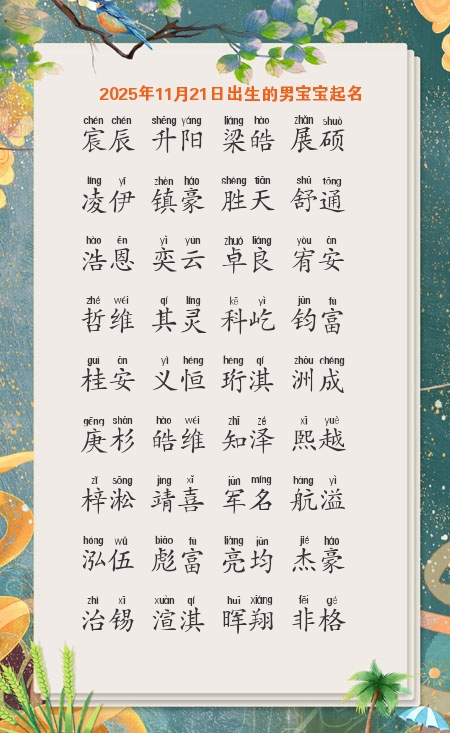 2025年11月21日出生的男宝宝起名
chén chén shēng yáng liáng hào zhǎn shuò
宸辰 升阳 梁皓 展硕
líng yī zhèn háo shèng tiān shū tōng
凌伊 镇豪 胜天 舒通
hào ēn yì yún zhuó liáng yòu ān
浩恩 奕云 卓良 宥安
zhé wéi qí líng kē yì jūn fù
哲维 其灵 科屹 钧富
guì ān yì héng héng qí zhōu chéng
桂安 义恒 珩淇 洲成
gēng shān hào wéi zhī zé xī yuè
庚杉 皓维 知泽 熙越
zǐ sōng jìng xǐ jūn míng háng yì
梓淞 靖喜 军名 航溢
hóng wǔ biāo fù liàng jūn jié háo
泓伍 彪富 亮均 杰豪
zhì xī xuàn qí huī xiáng fēi gé
治锡 渲淇 晖翔 非格